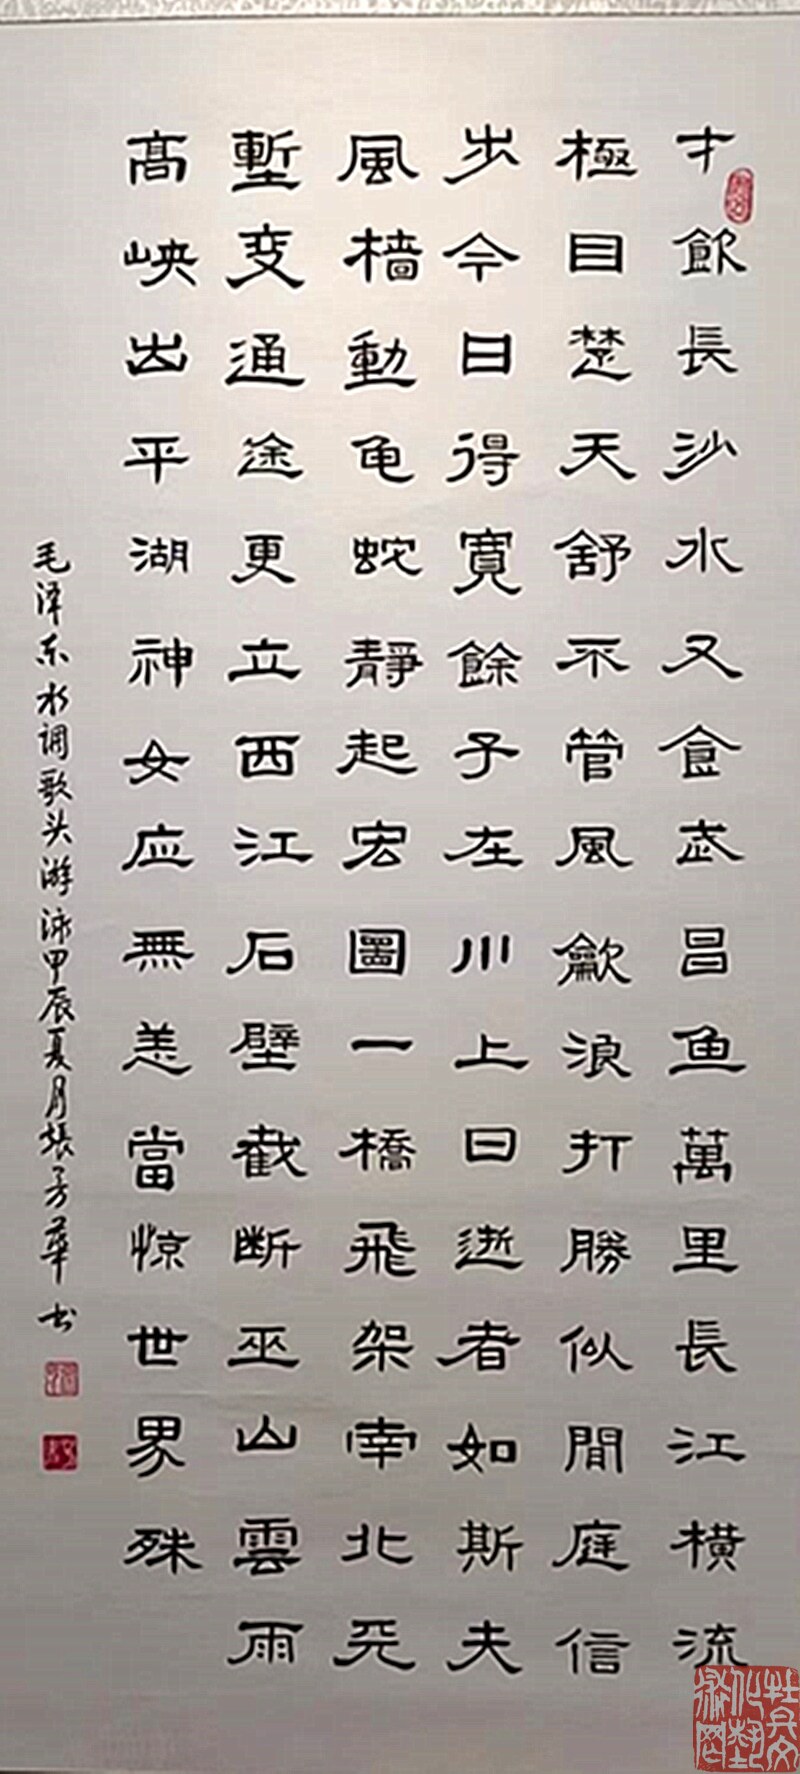 才飲長沙水又食武昌鱼萬里長江橫流
極目楚天舒不管風龡浪打勝似間庭信
步今日得寬餘子在川上曰逝者如斯夫
風樯動龟蛇靜起宏圖一橋飛架南北天
塹变通途更立西江石壁截断巫山雲雨
髙峡出平湖神女应無恙當惊世界殊
毛泽东水调歌头游泳甲辰夏月張芳華书